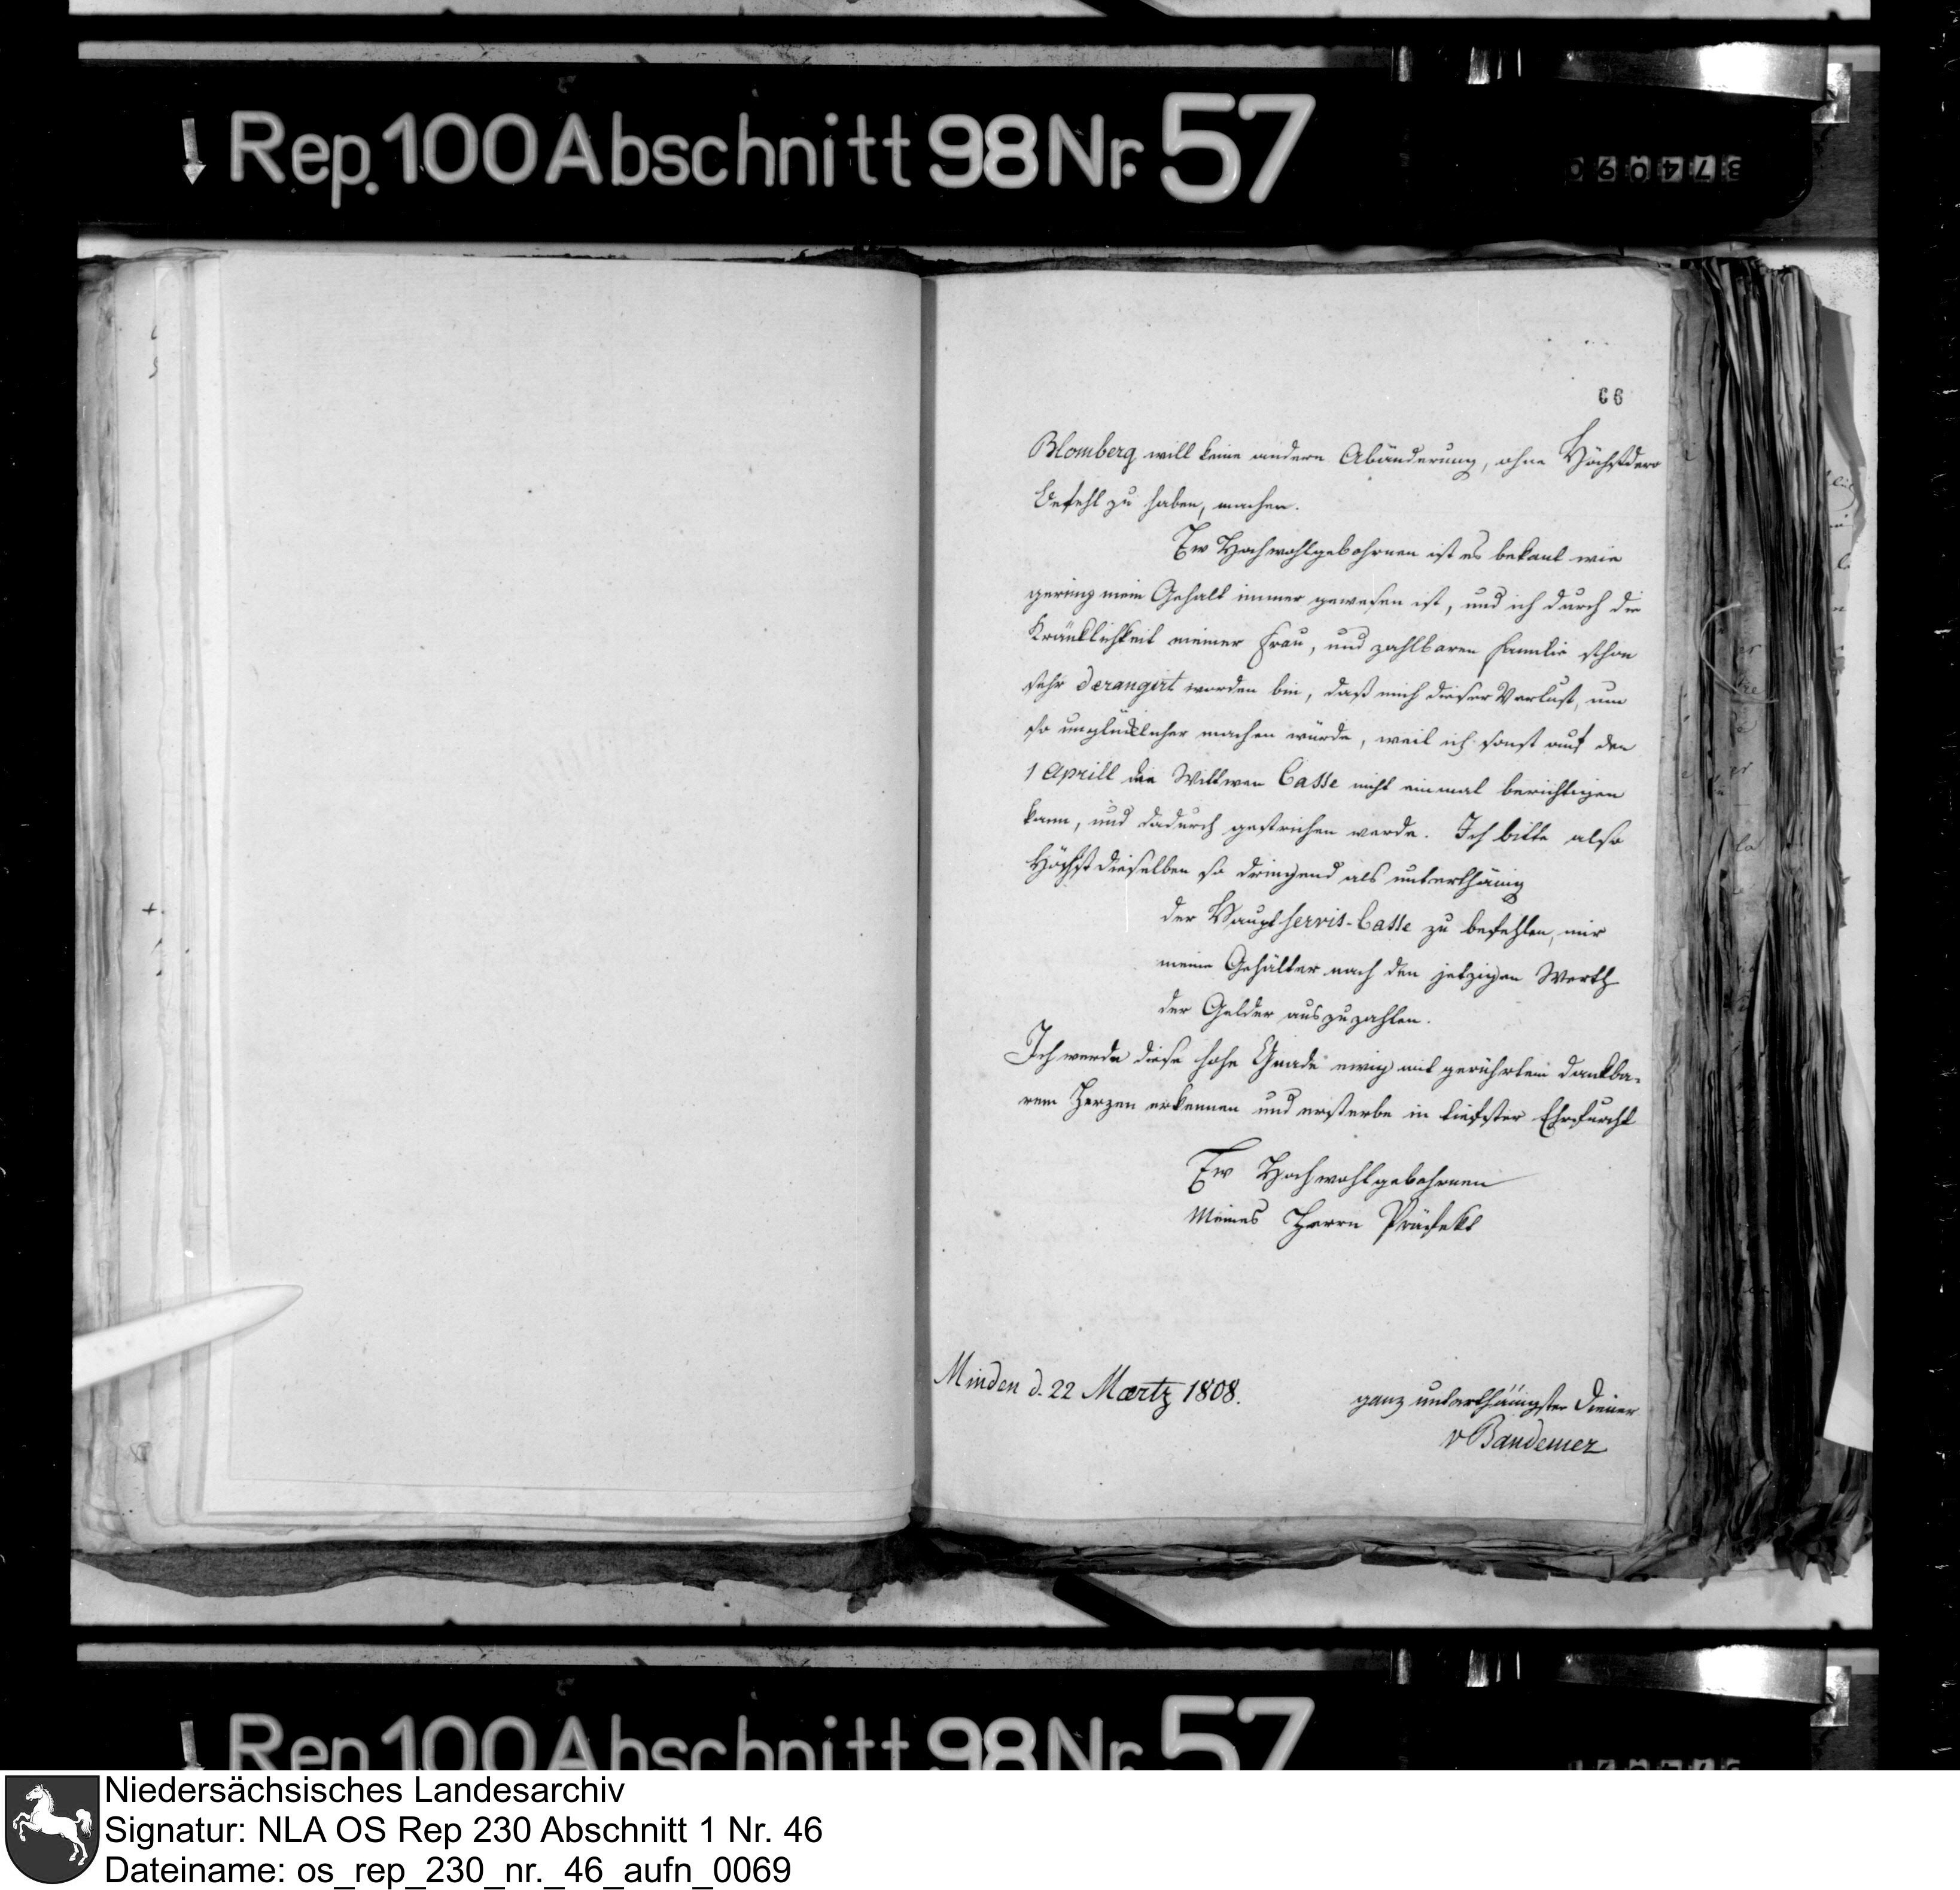 Rep. 100 Abschnitt 98 Nr. 57
374090
66
Blomberg will keine andere Abänderung, ohne Höchstdero
Befehl zu haben, machen.
Ew Hochwohlgebohrnen ist es bekant wie
gering mein Gehalt immer gewesen ist, und ich durch die
Kränklichkeit meiner Frau, und zahlbaren Familie schon
sehr derangirt worden bin, daß mich dieser Verlust, um
so unglücklicher machen würde, weil ich sonst auf den
1 Aprill die Wittwen Casse nicht einmal berichtigen
kann, und dadurch gestrichen werde. Ich bitte also
Höchst dieselben so dringend als unterthänig
der Haupt Servis-Casse zu befehlen, mir
meine Gehälter nach den jetzigen Werth
der Gelder auszuzahlen.
Ich werde diese hohe Gnade ewig mit gerührtem dankba-
rem Herzen erkennen und ersterbe in tiefster Ehrfurcht
Ew Hochwohlgebohrnen
Meines Herrn Präfekt
Minden d. 22 Maertz 1808.
ganz unterthänigster Diener
v Bandemer
Rep. 100 Abschnitt 98 Nr. 57
Niedersächsisches Landesarchiv
Signatur: NLA OS Rep 230 Abschnitt 1 Nr. 46
Dateiname: os_rep_230_nr._46_aufn_0069